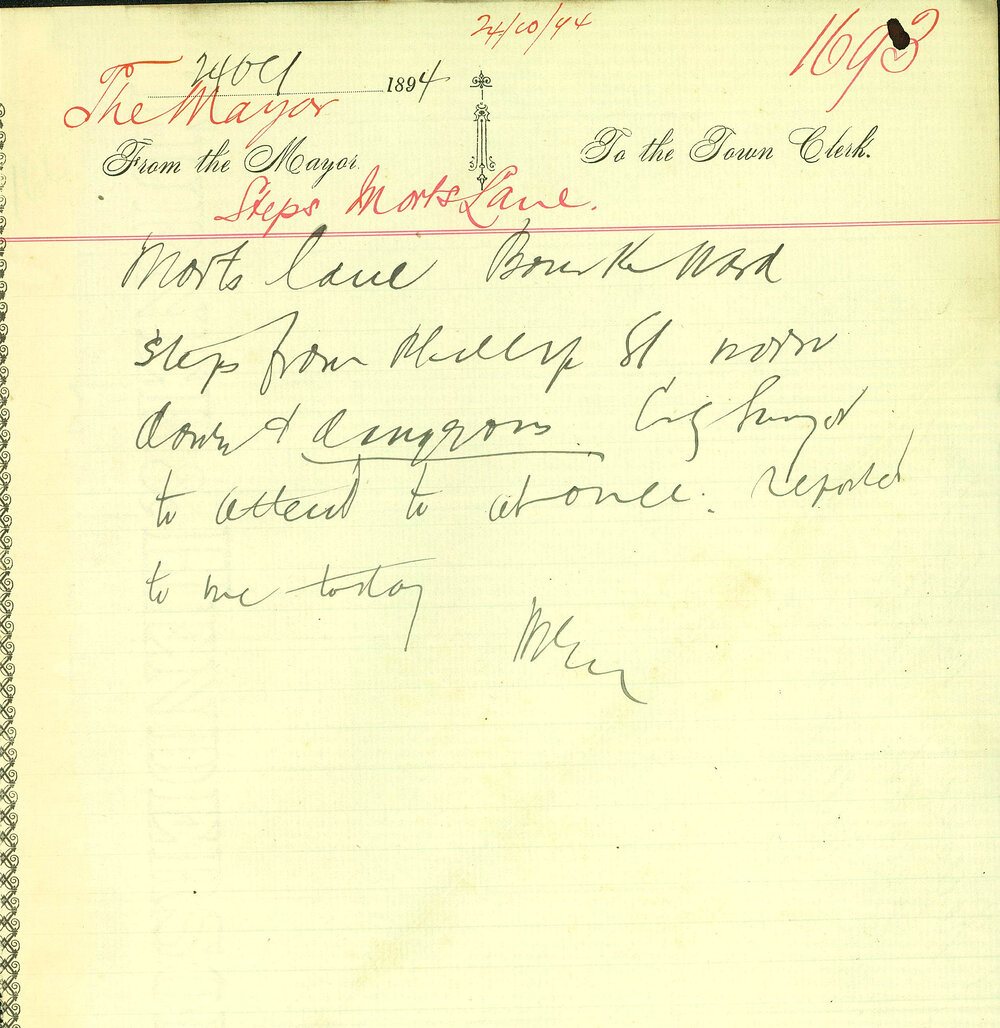 24/10/94
1693
24 Oct 1894
The Mayor
From the Mayor. To the Town Clerk.
Steps Morts Lane.
Morts Lane Bourke Ward
Steps from Phillip St worn
down & dangerous. City Surveyor
to attend to at once. reported
to me today